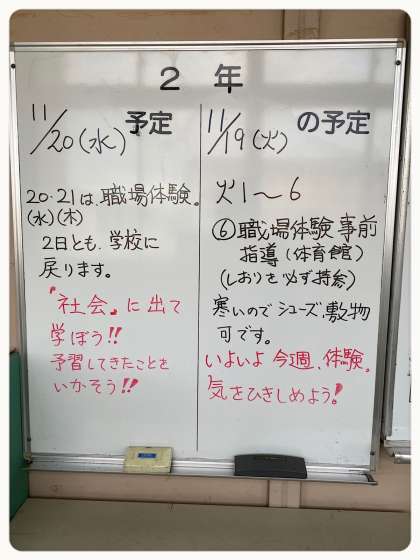 2 年
11/19(火) の予定
火1～6
⑥職場体験事前
指導(体育館)
(しおりを必ず持参)
寒いのでシューズ、敷物
可です。
いよいよ今週、体験。
気をひきしめよう!
11/20(水) 予定
20・21は、職場体験。
(水)(木)
2日とも、学校に
戻ります。
『社会』に出て
学ぼう!!
予習してきたことを
いかそう!!